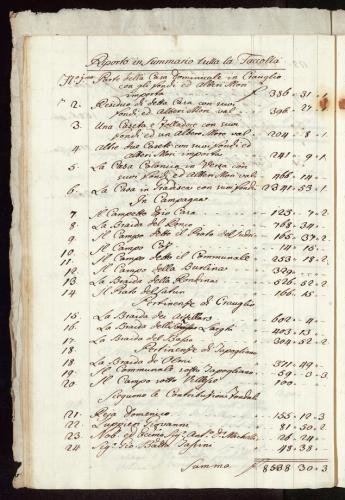 Riporto in Summario tutta la Facoltà
N.o 1mo Parte della Casa Dominicale in Crauglio
con gli fondi ed Alberi Mori
importa f 336 - 31 - 1
2. Residuo di detta Casa con suoi
fondi ed Alberi Mori val. 396 - 27 -
3. Una Casetta e Folladore con suoi
fondi ed un Albero Mori val. 204 - 8 - 1
4. Altre due Casette con suoi fondi ed
Alberi Mori importa 241 - 9 - 1
5. La Casa Colonica in Versa con
suoi fondi ed Alberi Mori val. 466 - 14 -
6. La Casa in Fradisca con suoi fondi 2341 - 53 - 1
In Campagna
7. Il Campetto Casa 123 - 7 - 2
8. La Braida del 768 - 34 -
9. Il Campo detto il Prato del 165 - 37 - 2
10. Il Campo 14 - 15 -
11. Il Campo detto il Communale 253 - 18 - 2
12. Il Campo della Burlina 329
13. La Braida della Rondina 526 - 52 - 2
14. Il Prato del 166 - 15 -
Pertinenze di Crauglio
15. La Braida dei 602 - 4 -
16. La Braida delli Larghi 403 - 13 -
17. La Braida del Basso 304 - 52 - 2
18. Pertinenze di Tapogliano
18. La Braida di Olmi 371 - 49 -
19. Il Communale sotto Tapogliano 59 - 3 - 3
20. Il Campo sotto 100
Sieguono le Contribuzioni Fondali
21. Reja Domenico 155 - 12 - 3
22. Zuppini Giovanni 81 - 50 - 2
23. Nob. ed Sig.r Ant.o 26 - 24 -
24. Sig.r Gio. Batta 48 - 38 -
Summa f 8588 30 - 3